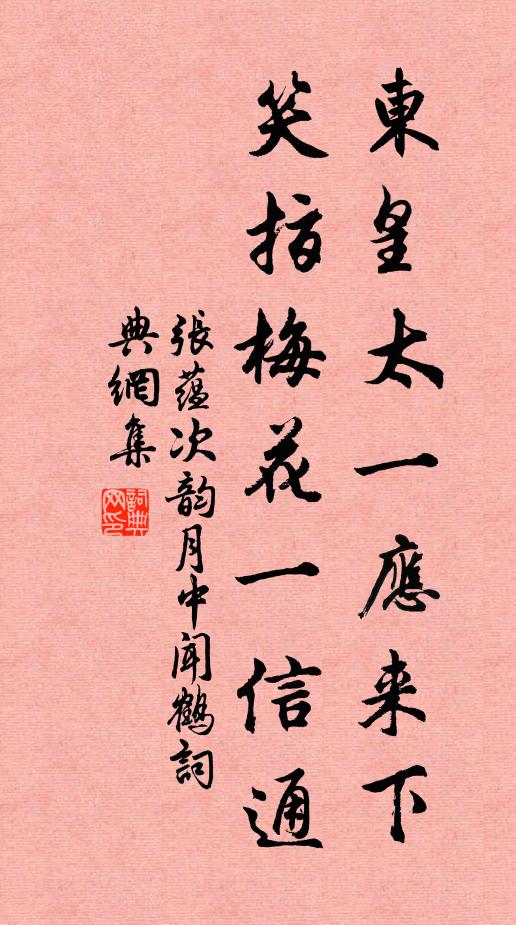 東皇太一應来下
笑指梅花一信通
張蘊次韵月中闻鶴詞
典網集
詞典網印